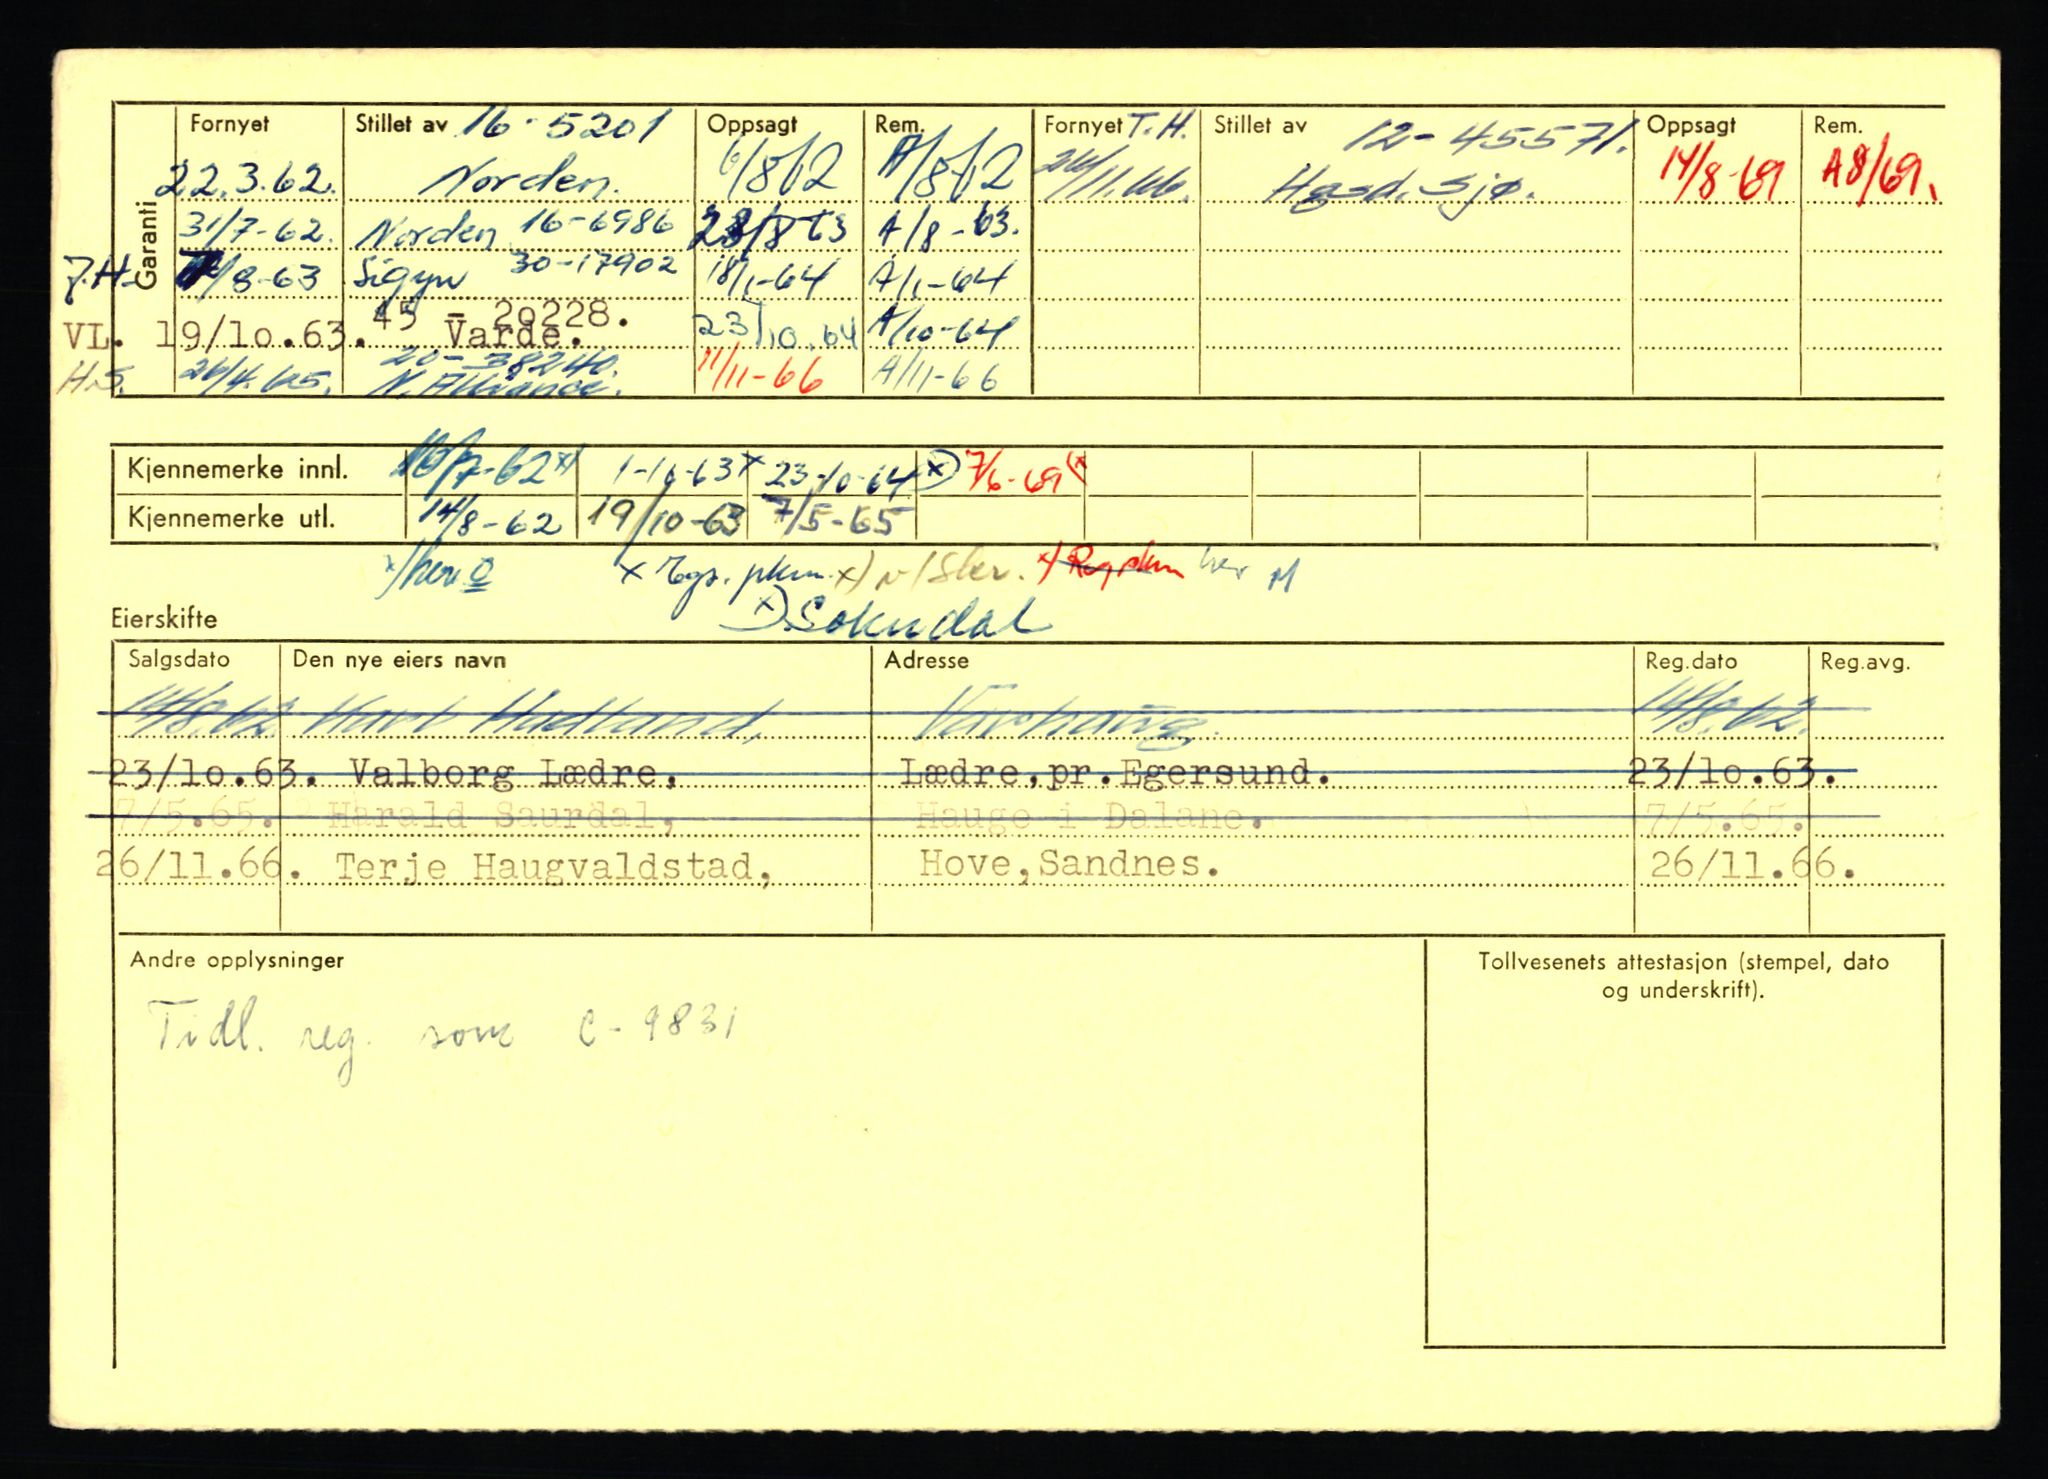 Garanti
Fornyet Stillet av 16-5201 Oppsagt Rem. Fornyet T.H. Stillet av 12-45571. Oppsagt Rem.
22.3.62. Norden. 6/8-62 A/8-62 26/11.66. Hgsd. Sjø. 14/8-69 A8/69.
31/7-62. Norden 16-6986 23/8 63 A/8-63.
J.H. /8-63 Sigyn 30-17902 18/1-64 A/1-64
VL. 19/10.63. 45 - 20228. Varde. 23/10.64 A/10-64
H.S. 26/4.65. 20-38240. N. Alliance. 11/11-66 A/11-66
Kjennemerke innl. 16/7-62 x) 1-10-63 x 23-10-64 x) 7/6-69 x)
Kjennemerke utl. 14/8-62 19/10-63 7/5-65
x) her O x Egs. pkm. x) v/Skr. x) Reg pkm her M
x) Sokndal
Eierskifte
Salgsdato Den nye eiers navn Adresse Reg.dato Reg.avg.
14/8.62. Karl Hadland, Varhaug. 14/8.62.
23/10.63. Valborg Lædre, Lædre,pr.Egersund. 23/10.63.
7/5.65. Harald Saurdal, Hauge i Dalane. 7/5.65.
26/11.66. Terje Haugvaldstad, Hove,Sandnes. 26/11.66.
Andre opplysninger
Tollvesenets attestasjon (stempel, dato
og underskrift).
Tidl. reg. som C-9831